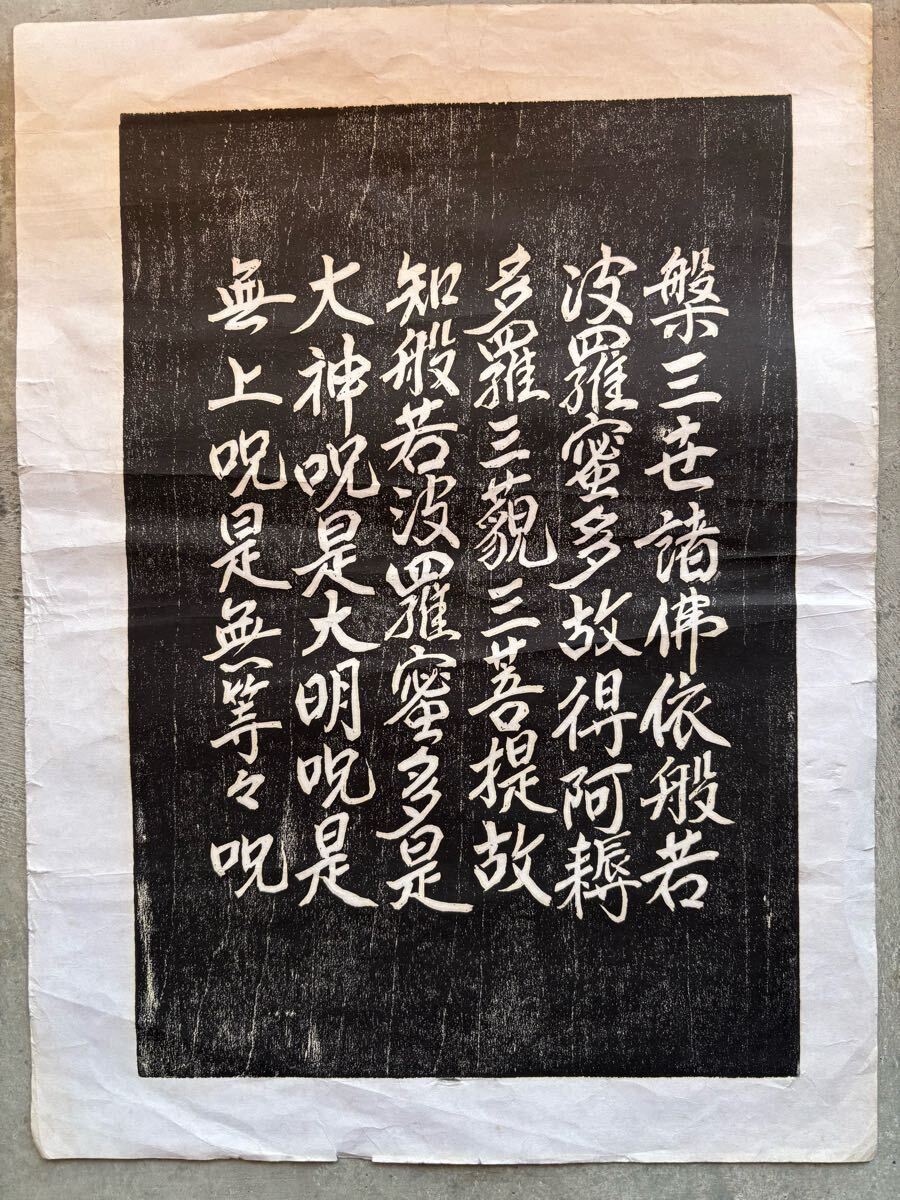 槃三世諸佛依般若
波羅蜜多故得阿耨
多羅三藐三菩提故
知般若波羅蜜多是
大神呪是大明呪是
無上呪是無等々呪